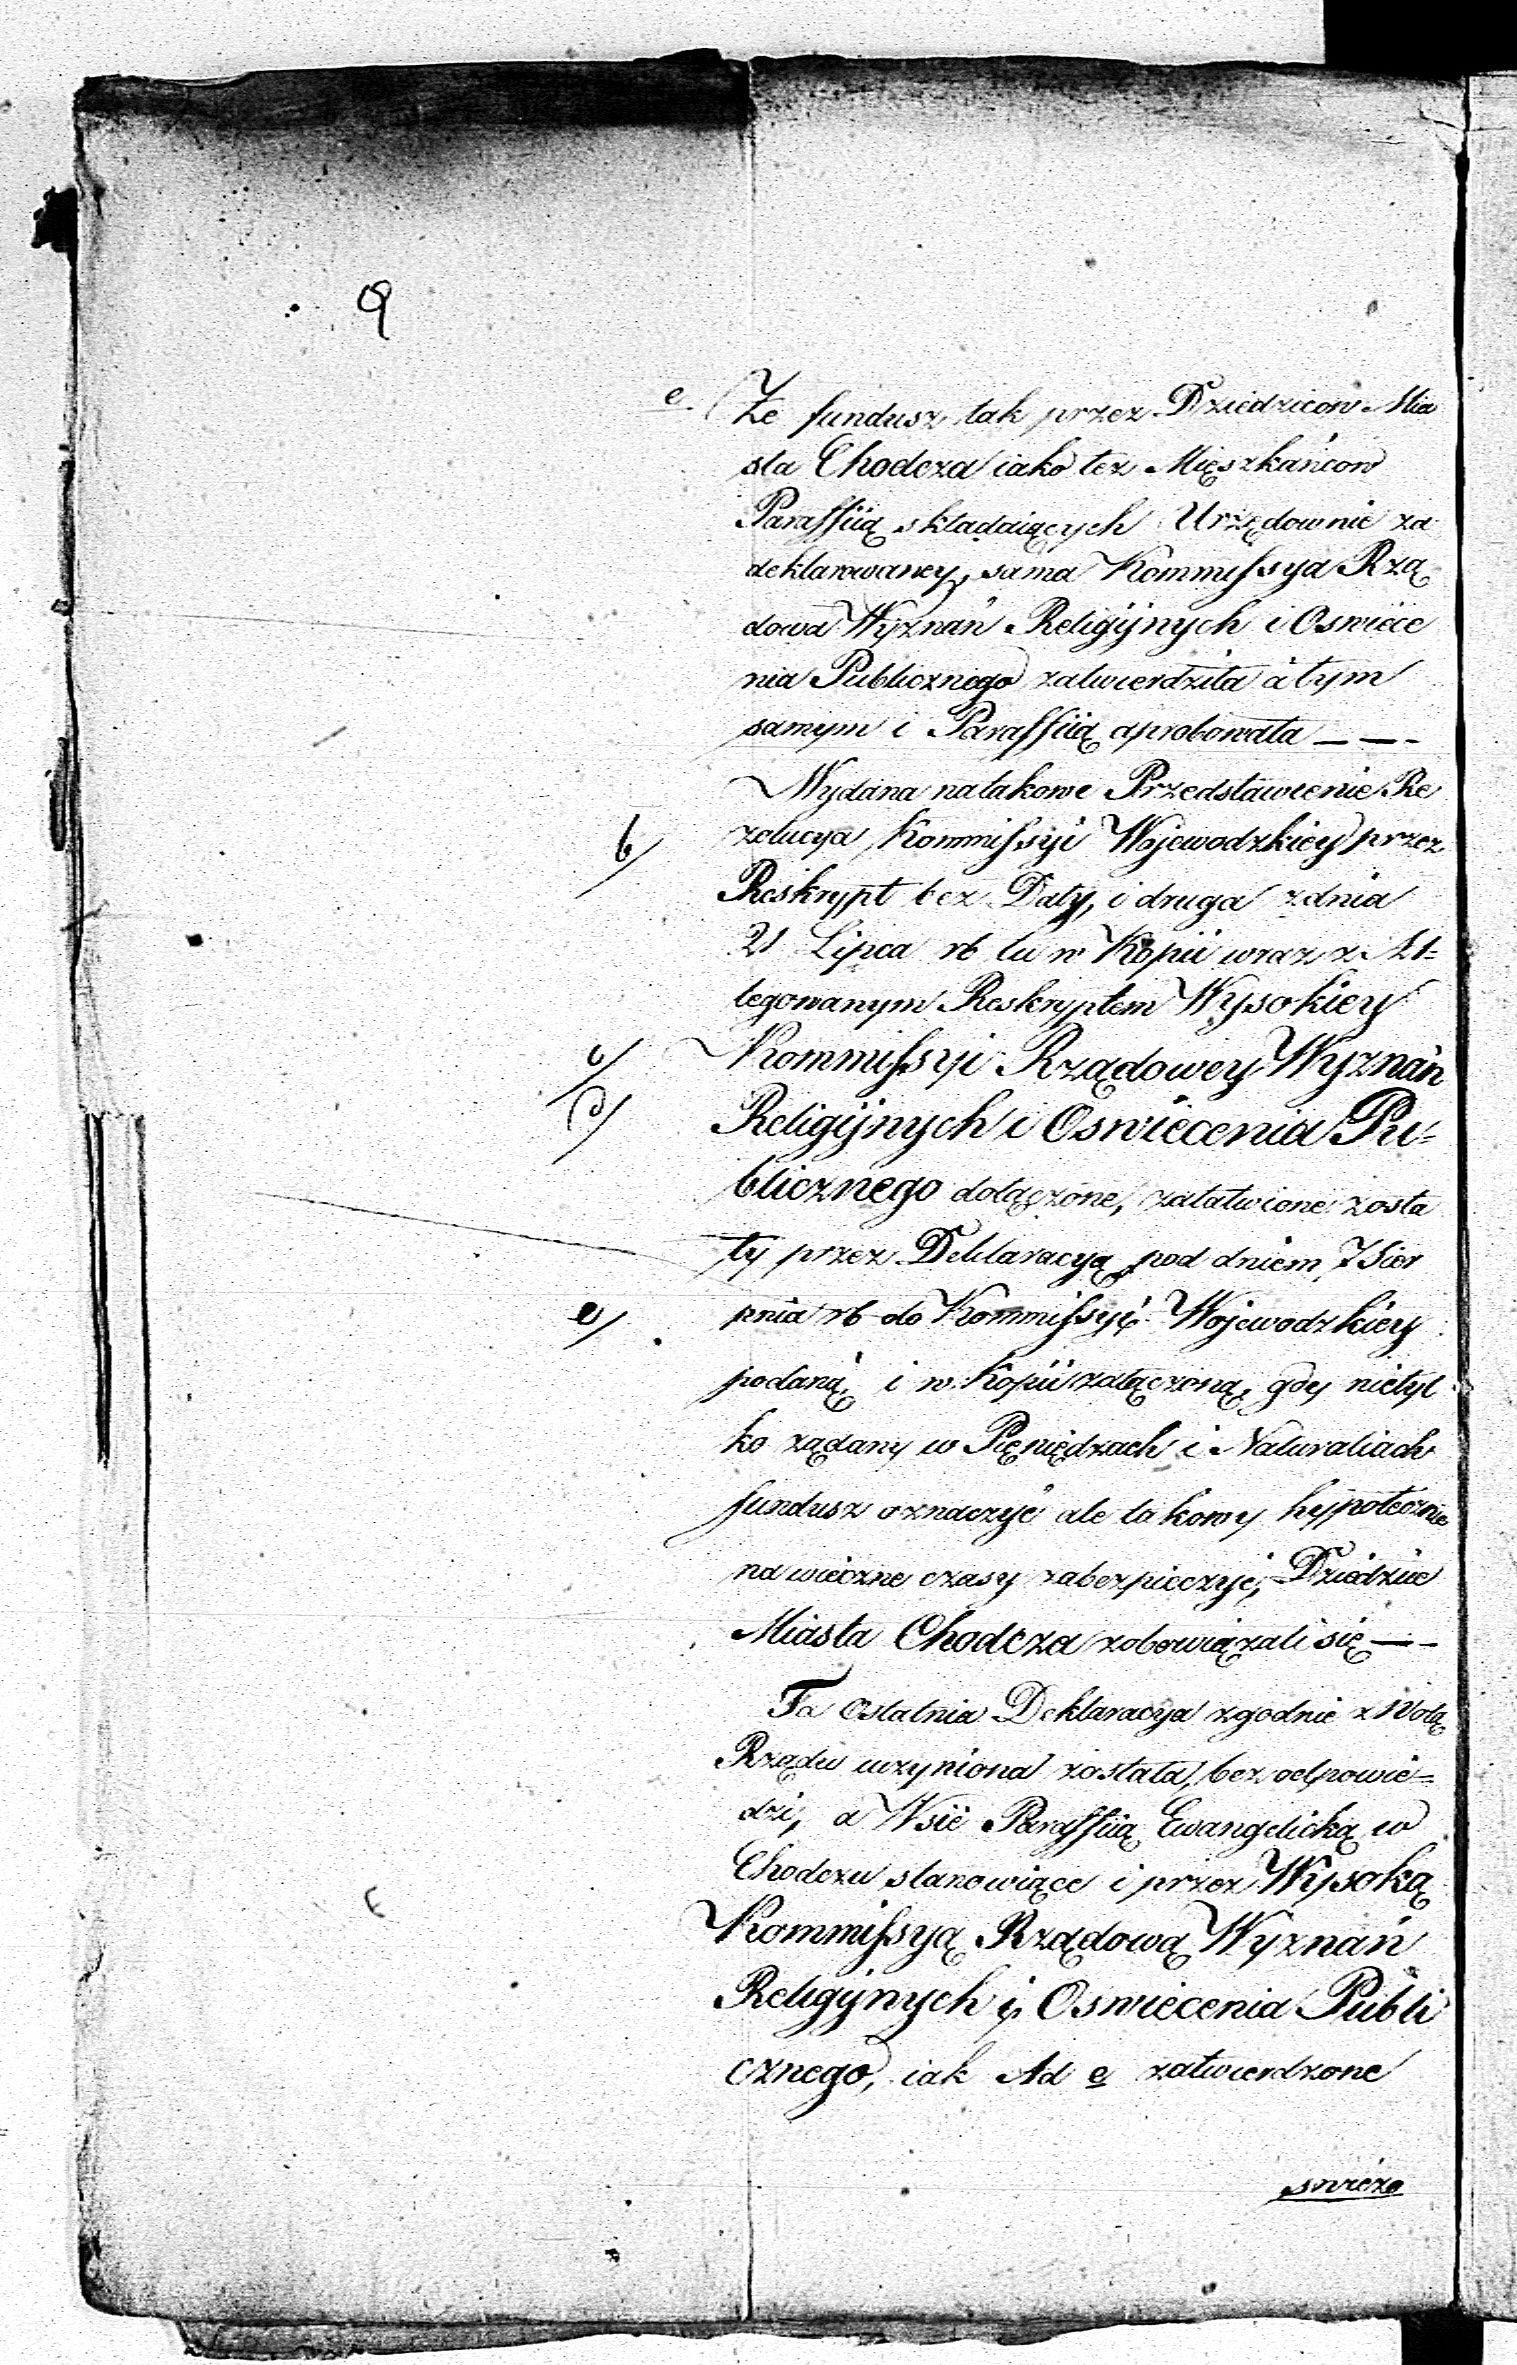 9
e. Że fundusz tak przez Dziedzicow Mia
sta Chodcza iako też Mięszkańcow
Paraffiią składaiących Urzędownie za
deklarowaney, sama Kommissya Rzą
dowa Wyznań Religijnych i Oswiece
nia Publicznego zatwierdziła a tym
samym i Paraffiią aprobowała — — -
Wydana na takowe Przedstawienie Re
b/ zolucya Kommissyi Wojewodzkiey przez
Reskrypt bez Daty, i druga z dnia
21 Lipca rb tu w Kopii wraz z Al=
legowanym Reskryptem Wysokiey
c/ Kommissyi Rządowey Wyznań
d/ Religijnych i Oswiecenia Pu=
blicznego dołączone, załatwione zosta
ły przez Deklaracyą pod dniem 7 Sier
e/ pnia rb do Kommissyi Wojewodzkiey
podaną i w Kopii załączoną, gdy nietyl
ko żądany w Pięniędzach i Naturaliach
fundusz oznaczyć ale takowy hypotecznie
na wieczne czasy zabezpieczyć, Dziedzice
Miasta Chodcza zobowiązali się — -
Ta ostatnia Deklaracya zgodnie z Wolą
Rządu uczyniona została, bez odpowie=
dzi, a Wsie Paraffiią Ewangelicką w
Chodczu stanowiące i przez Wysoką
Kommissyą Rządową Wyznań
Religijnych i Oswiecenia Publi
cznego, iak Ad e zatwierdzone
swiezo